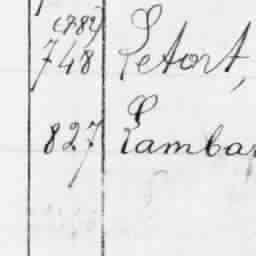 (782)
748 Letort,
827 Lambar